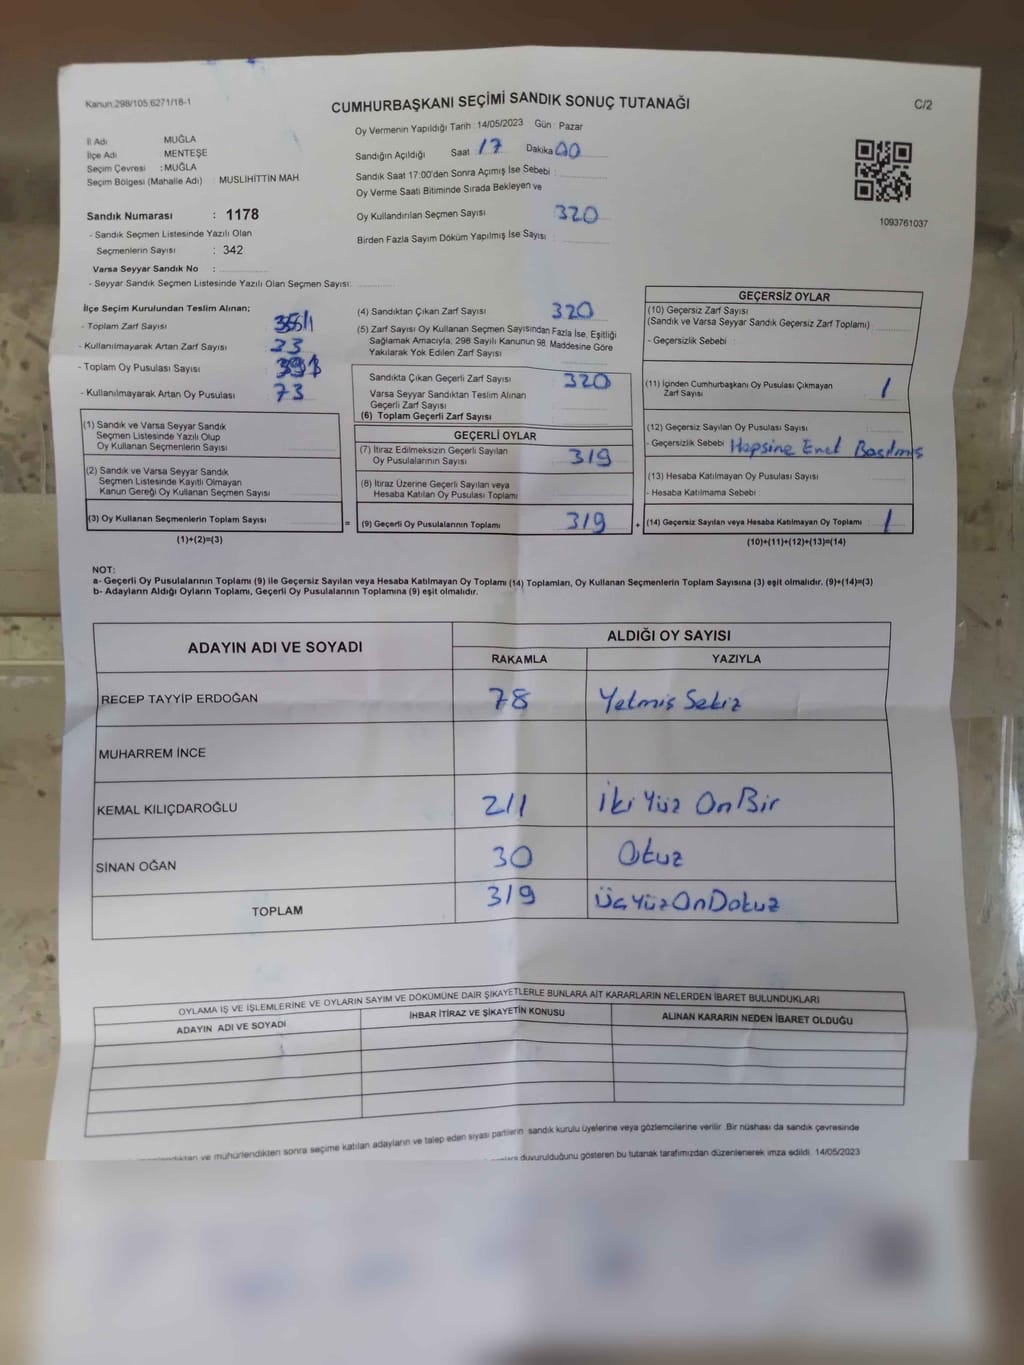 Kanun:298/105,6271/18-1
CUMHURBAŞKANI SEÇİMİ SANDIK SONUÇ TUTANAĞI
C/2
İl Adı MUĞLA
İlçe Adı MENTEŞE
Seçim Çevresi : MUĞLA
Seçim Bölgesi (Mahalle Adı) : MUSLİHİTTİN MAH.
Oy Vermenin Yapıldığı Tarih : 14/05/2023 Gün : Pazar
Sandığın Açıldığı Saat 17 Dakika 00
Sandık Saat 17:00'den Sonra Açımış İse Sebebi :
Oy Verme Saati Bitiminde Sırada Bekleyen ve
Oy Kullandırılan Seçmen Sayısı 320
Birden Fazla Sayım Döküm Yapılmış İse Sayısı
1093761037
Sandık Numarası : 1178
- Sandık Seçmen Listesinde Yazılı Olan
Seçmenlerin Sayısı : 342
Varsa Seyyar Sandık No :
- Seyyar Sandık Seçmen Listesinde Yazılı Olan Seçmen Sayısı:
İlçe Seçim Kurulundan Teslim Alınan;
- Toplam Zarf Sayısı
- Kullanılmayarak Artan Zarf Sayısı 23
- Toplam Oy Pusulası Sayısı
- Kullanılmayarak Artan Oy Pusulası 73
(1) Sandık ve Varsa Seyyar Sandık
Seçmen Listesinde Yazılı Olup
Oy Kullanan Seçmenlerin Sayısı
(2) Sandık ve Varsa Seyyar Sandık
Seçmen Listesinde Kayıtlı Olmayan
Kanun Gereği Oy Kullanan Seçmen Sayısı
(3) Oy Kullanan Seçmenlerin Toplam Sayısı
=
(1)+(2)=(3)
(4) Sandıktan Çıkan Zarf Sayısı 320
(5) Zarf Sayısı Oy Kullanan Seçmen Sayısından Fazla İse, Eşitliği
Sağlamak Amacıyla, 298 Sayılı Kanunun 98. Maddesine Göre
Yakılarak Yok Edilen Zarf Sayısı
Sandıkta Çıkan Geçerli Zarf Sayısı 320
Varsa Seyyar Sandıktan Teslim Alınan
Geçerli Zarf Sayısı
(6) Toplam Geçerli Zarf Sayısı
GEÇERLİ OYLAR
(7) İtiraz Edilmeksizin Geçerli Sayılan
Oy Pusulalarının Sayısı 319
(8) İtiraz Üzerine Geçerli Sayılan veya
Hesaba Katılan Oy Pusulası Toplamı
(9) Geçerli Oy Pusulalarının Toplamı 319
+
GEÇERSİZ OYLAR
(10) Geçersiz Zarf Sayısı
(Sandık ve Varsa Seyyar Sandık Geçersiz Zarf Toplamı)
- Geçersizlik Sebebi :
(11) İçinden Cumhurbaşkanı Oy Pusulası Çıkmayan
Zarf Sayısı 1
(12) Geçersiz Sayılan Oy Pusulası Sayısı
- Geçersizlik Sebebi Hepsine Evet Basılmış
(13) Hesaba Katılmayan Oy Pusulası Sayısı
- Hesaba Katılmama Sebebi :
(14) Geçersiz Sayılan veya Hesaba Katılmayan Oy Toplamı 1
(10)+(11)+(12)+(13)=(14)
NOT:
a- Geçerli Oy Pusulalarının Toplamı (9) ile Geçersiz Sayılan veya Hesaba Katılmayan Oy Toplamı (14) Toplamları, Oy Kullanan Seçmenlerin Toplam Sayısına (3) eşit olmalıdır. (9)+(14)=(3)
b- Adayların Aldığı Oyların Toplamı, Geçerli Oy Pusulalarının Toplamına (9) eşit olmalıdır.
ADAYIN ADI VE SOYADI
ALDIĞI OY SAYISI
RAKAMLA YAZIYLA
RECEP TAYYİP ERDOĞAN 78 Yetmiş Sekiz
MUHARREM İNCE
KEMAL KILIÇDAROĞLU 211 İki Yüz On Bir
SİNAN OĞAN 30 Otuz
TOPLAM 319 ÜçYüzOnDokuz
OYLAMA İŞ VE İŞLEMLERİNE VE OYLARIN SAYIM VE DÖKÜMÜNE DAİR ŞİKAYETLERLE BUNLARA AİT KARARLARIN NELERDEN İBARET BULUNDUKLARI
ADAYIN ADI VE SOYADI İHBAR İTİRAZ VE ŞİKAYETİN KONUSU ALINAN KARARIN NEDEN İBARET OLDUĞU
ve mühürlendikten sonra seçime katılan adayların ve talep eden siyasi partilerin sandık kurulu üyelerine veya gözlemcilerine verilir. Bir nüshası da sandık çevresinde
duyurulduğunu gösteren bu tutanak tarafımızdan düzenlenerek imza edildi. 14/05/2023